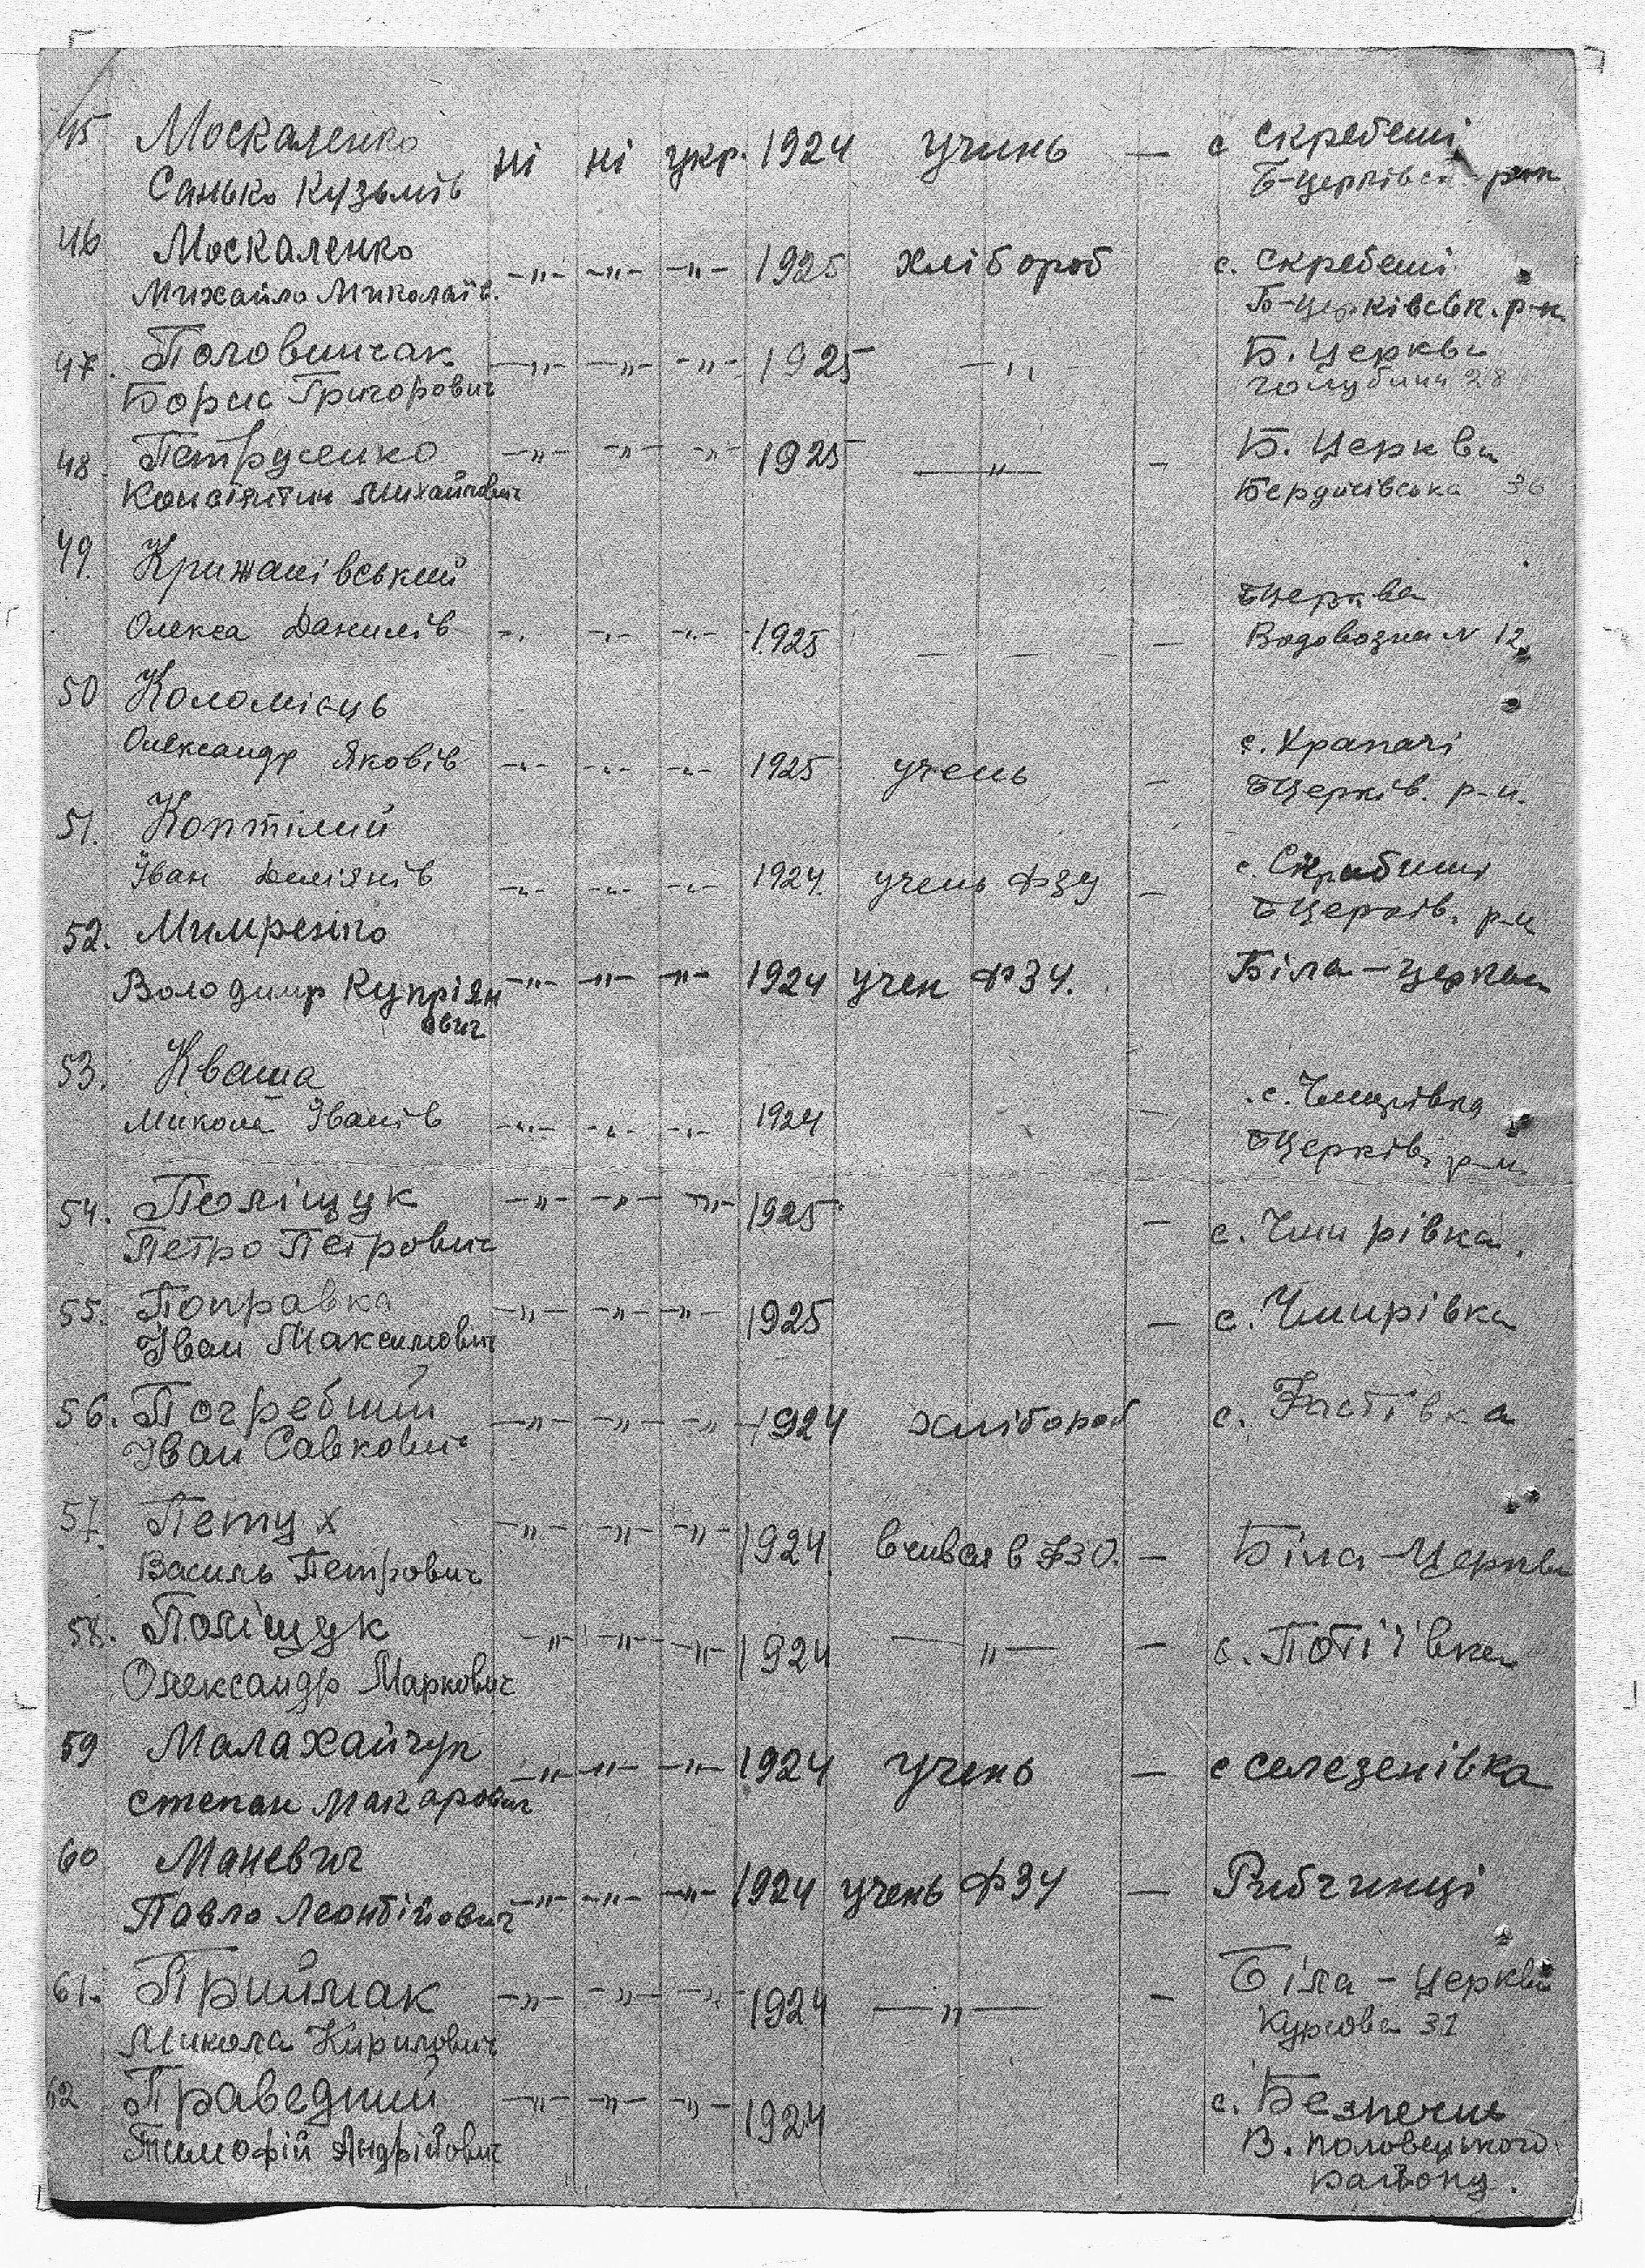 45 Москаленко ні ні укр. 1924 учинь — с скребеші
Санько Кузьмів Б-церківськ рон
46 Москаленко -"- -"- -"- 1925 хлібороб с. скребеші
Михайло Миколаїв. Б-церківськ. р-н.
47. Половинчак -"- -"- -"- 1925 -"- Б. Церква
Борис Григорович голубина 28
48. Петрусенко -"- -"- -"- 1925 -"- - Б. Церква
Констянтин Михайлович Бердичівська 36
49. Крижанівський
БЦерква
Олекса Данилів -"- -"- -"- 1925 — Водовозна N 12
50 Коломієць
Олександр Яковів -"- -"- -"- 1925 учень - с. Храпачі
БЦерків. р-н.
51. Коптілий
Іван Деміянів -"- -"- -"- 1924. учень ФЗУ - с. Скрибиші
БЦерків. р-н
52. Мимренко
Володимир Купріян -"- -"- -"- 1924 учен ФЗУ. Біла-церква
ович
53. Кваша
с. Чмирівка
Микола Іванів -"- -"- -"- 1924 -
БЦерків. р-н
54. Поліщук -"- -"- -"- 1925 - с. Чмирівка.
Петро Петрович
55. Поправка -"- -"- -"- 1925 - с. Чмирівка
Іван Максимович
56. Погребний -"- -"- -"- 1924 хлібороб с. Фастівка
Іван Савкович
57. Петух -"- -"- -"- 1924 вчився в ФЗО. - Біла-Церква
Василь Петрович
58. Поліщук -"- -"- -"- 1924 -"- - с. Потіївка
Олександр Маркович
59 Малахайчук -"- -"- -"- 1924 учень - с селезенівка
степан Макарович
60 Маневич -"- -"- -"- 1924 учень ФЗУ - Рибчинці
Павло Леонтійович
61. Приймак -"- -"- -"- 1924 -"- - Біла-церква
Микола Кирилович Курсова 31
62 Праведний -"- -"- -"- 1924 с. Безпечнь
Тимофій Андрійович В. половецького
району.